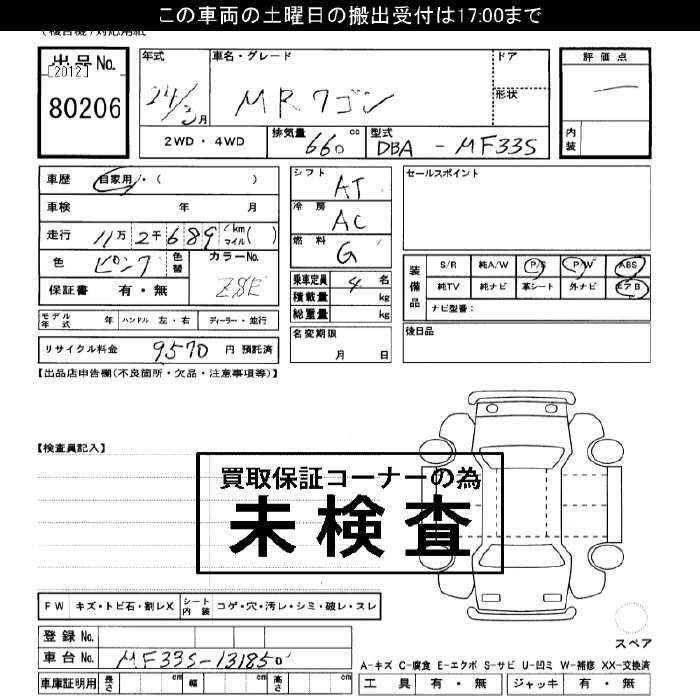 この車両の土曜日の搬出受付は17:00まで
出品No.
[2012]
80206
年式 車名・グレード ドア
24/3月 MRワゴン 形状
2WD・4WD 排気量 660 cc 型式 DBA - MF33S
評価点
内装
車歴 自家用・( )
車検 年 月
走行 11万2千689 km マイル ( )
色 ピンク 色替 カラーNo.
保証書 有・無 Z8E
モデル年式 年 ハンドル 左・右 ディーラー・並行
リサイクル料金 9570 円 預託済
シフト AT
冷房 AC
燃料 G
乗車定員 4 名
積載量 kg
総重量 kg
名変期限
月 日
セールスポイント
装備品 S/R 純A/W P/S P/W ABS
純TV 純ナビ 革シート 外ナビ エアB
ナビ型番:
後日品
【出品店申告欄(不良箇所・欠品・注意事項等)】
【検査員記入】
買取保証コーナーの為
未検査
FW キズ・トビ石・割レX シート内装 コゲ・穴・汚レ・シミ・破レ・スレ
スペア
登録No.
車台No. MF33S-131850
車庫証明用 長さ cm 幅 cm 高さ cm
A-キズ C-腐食 E-エクボ S-サビ U-凹ミ W-補修 XX-交換済
工具 有・無 ジャッキ 有・無